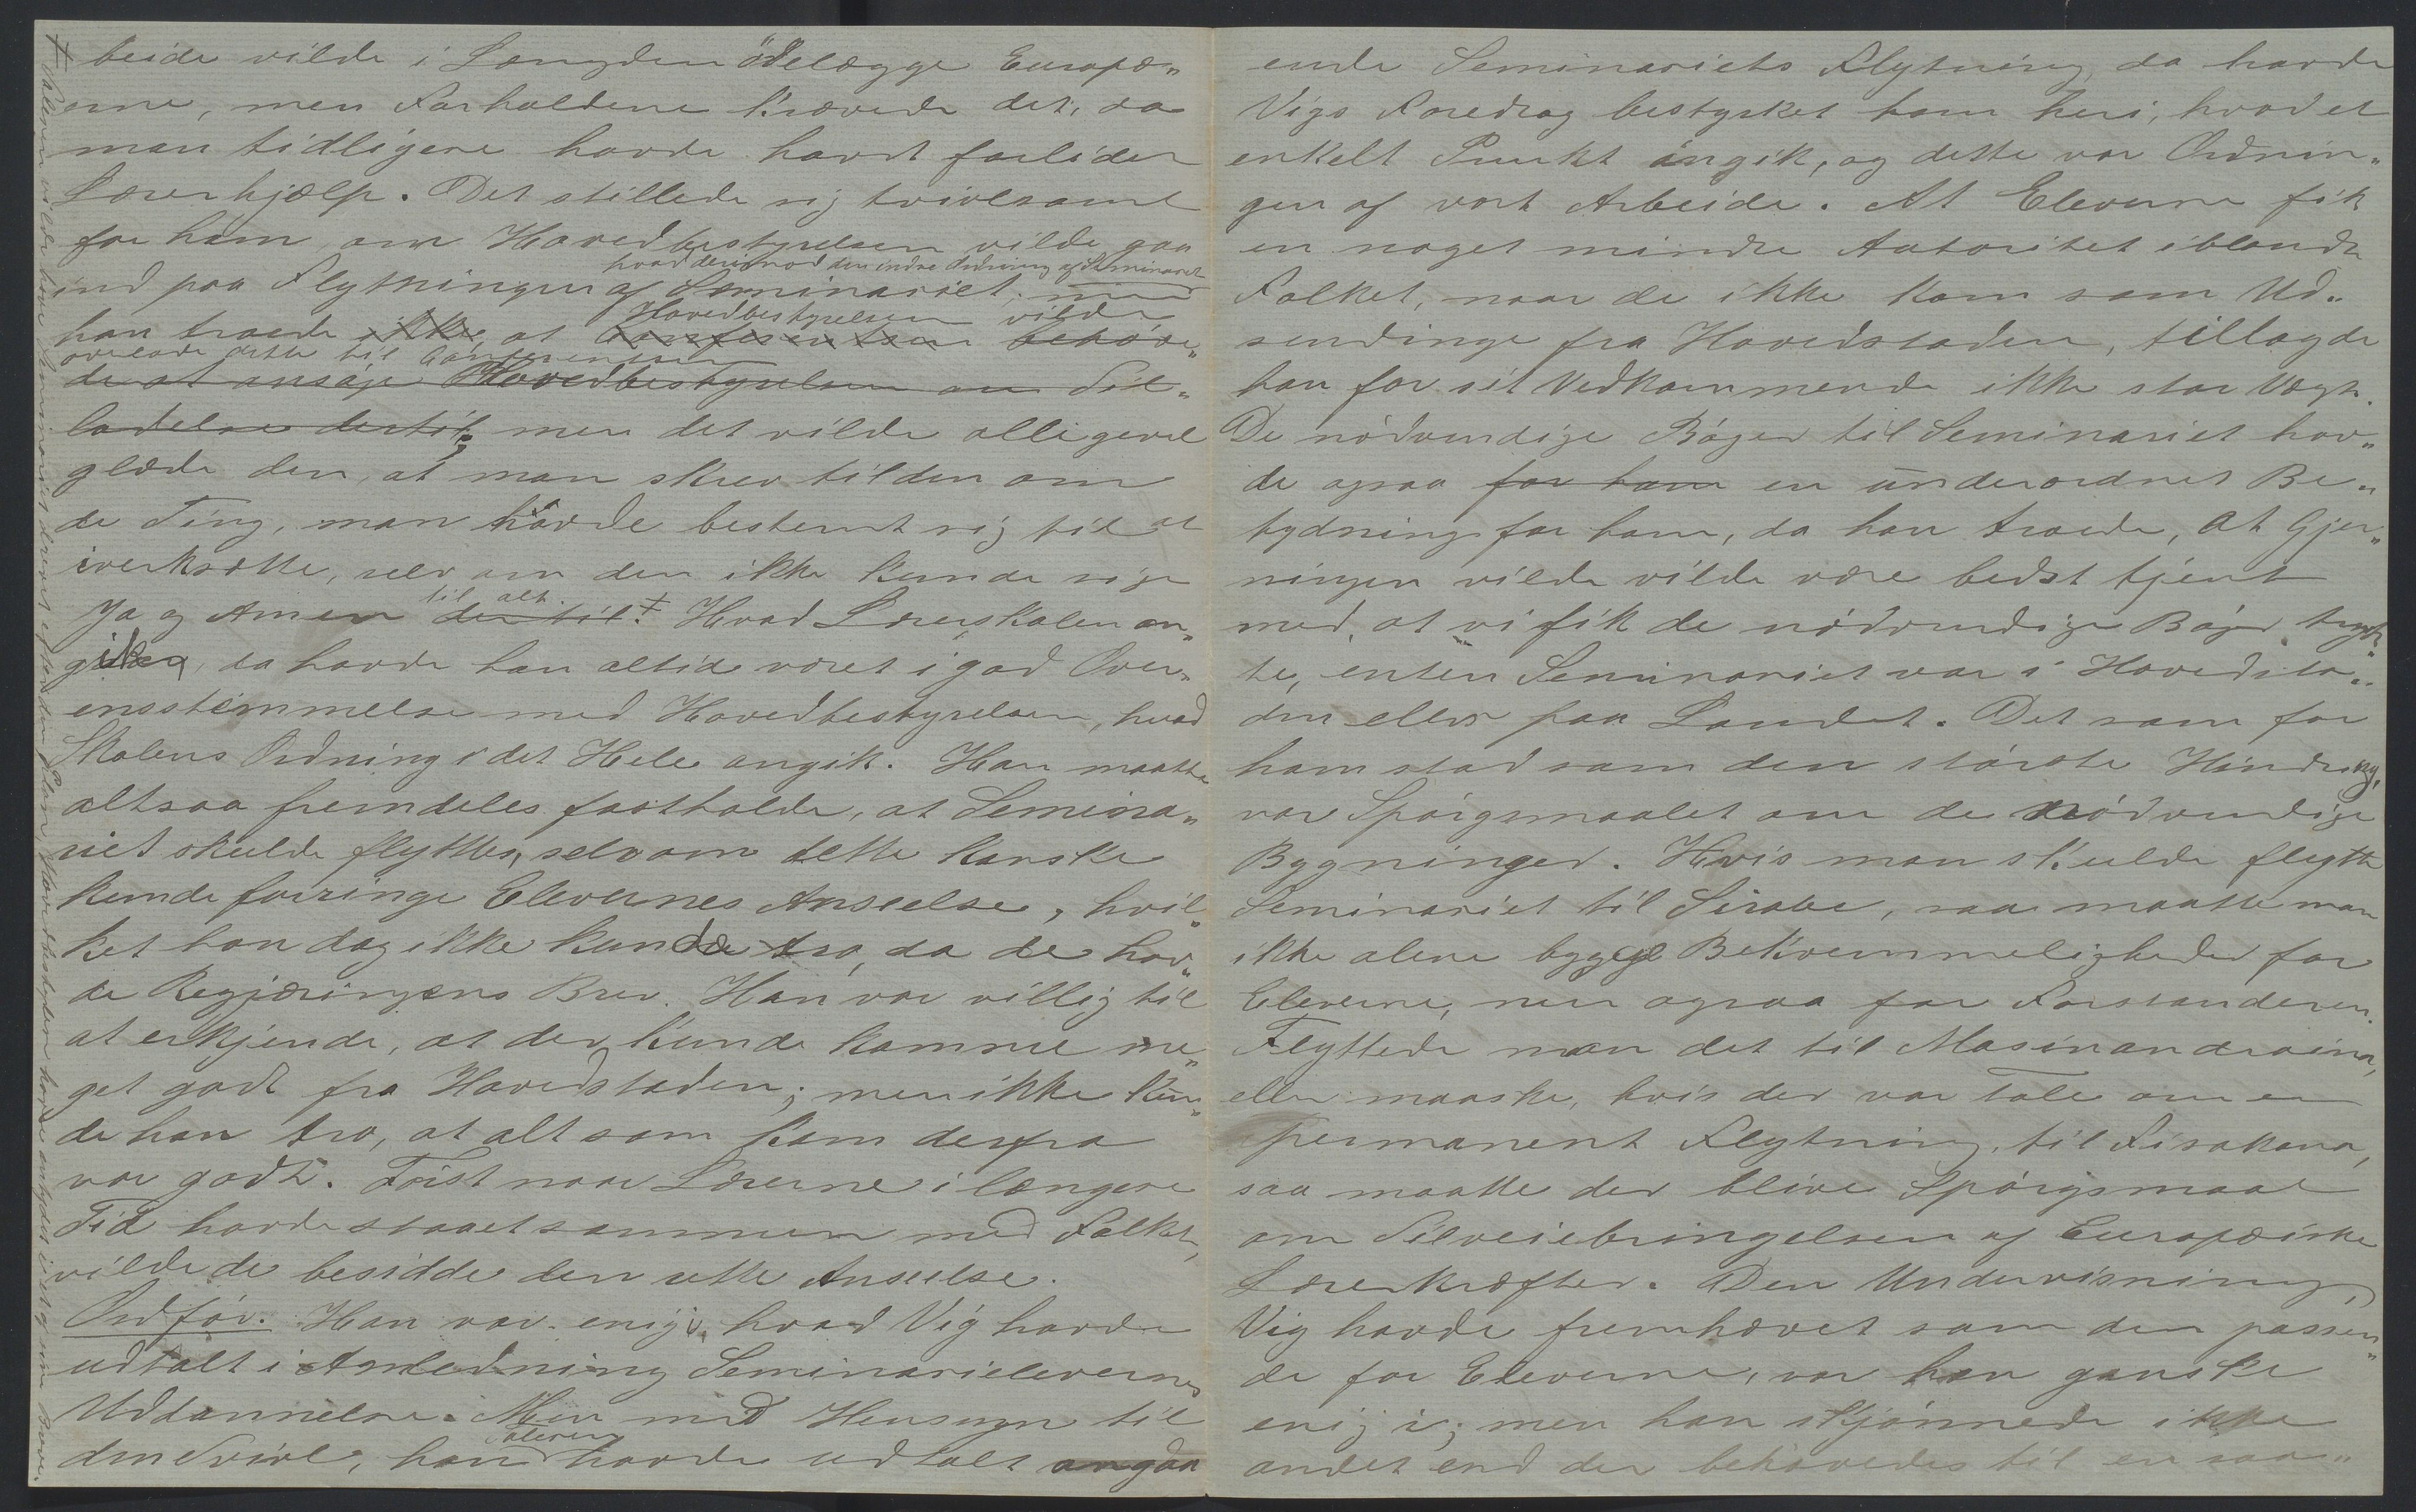 beide vilde i Længden ödelægge Europæ„
erne, men Forholdene krævede det, da
man tidligere havde havt forliden
Lærerhjælp. Det stillede sig tvivlsomt
for ham om Hovedbestyrelsen vilde gaa
hvad derimod den indre Ordning af Seminariet
ind paa Flytningen af Seminariet, men
Hovedbestyrelsen vilde
han troede ikke, at Conferentsen behöve„
overlade dette til Conferentsen
de at ansöge Hovedbestyrelsen om Til„
ladelse dertil; men det vilde alligevel
glæde den, at man skrev til den om
de Ting, man havde bestemt sig til at
iverksætte, selv om den ikke kunde sige
til alt.
Ja og Amen der til. ‡ Hvad Lærerskolen an„
gik, da havde han altid været i god Over„
ensstemmelse med Hovedbestyrelsen, hvad
Skolens Ordning i det Hele angik. Han maatte
altsaa fremdeles fastholde, at Semina„
riet skulde flyttes, selv om dette kanske
kunde forringe Elevernes Anseelse, hvil„
ket han dog ikke kunde tro, da de hav„
de Regjæringens Brev. Han var villig til
at erkjende, at der kunde komme me„
get godt fra Hovedstaden; men ikke kun„
de han tro, at alt som kom derfra
var godt. Först naar Lærerne i længere
Tid havde staaet sammen med Folket,
vilde de besidde den rette Anseelse.
Ordför. Han var enig i, hvad Vig havde
udtalt i Anledning Seminarielevernes
Uddannelse. Men med Hensyn til
Taleren
den Tvivl, han havde udtalt angaa
ende Seminariets Flytning, da havde
Vigs Foredrag bestyrket ham heri, hvad et
enkelt Punkt angik, og dette var Ordnin„
gen af vort Arbeide. At Eleverne fik
en noget mindre Autoritet iblandt
Folket, naar de ikke kom som Ud„
sendinge fra Hovedstaden, tillagde
han for sit Vedkommende ikke stor Vægt.
De nödvendige Böger til Seminariet hav„
de ogsaa for ham en underordnet Be„
tydning for ham, da han troede, at Gjer„
ningen vilde vilde være bedst tjent
med, at vi fik de nödvendige Böger tryk„
te, enten Seminariet var i Hovedsta„
den eller paa Landet. Det som for
ham stod som den störste Hindring,
var Spörgsmaalet om de nödvendige
Bygninger. Hvis man skulde flytte
Seminariet til Sirabe, saa maatte man
ikke alene bygge Bekvemmeligheder for
Eleverne, men ogsaa for Forstanderen.
Flyttede man det til Masinandraina,
eller maaske, hvis der var Tale om en
permanent Flytning, til Fisakana,
saa maatte der blive Spörgsmaal
om Tilveiebringelsen af Europæiske
Lærerkræfter. Den Undervisning,
Vig havde fremhævet som den passen„
de for Eleverne, var han ganske
enig i; men han skjönnede ikke
andet end der behövedes til en saa„
‡ Taleren vilde